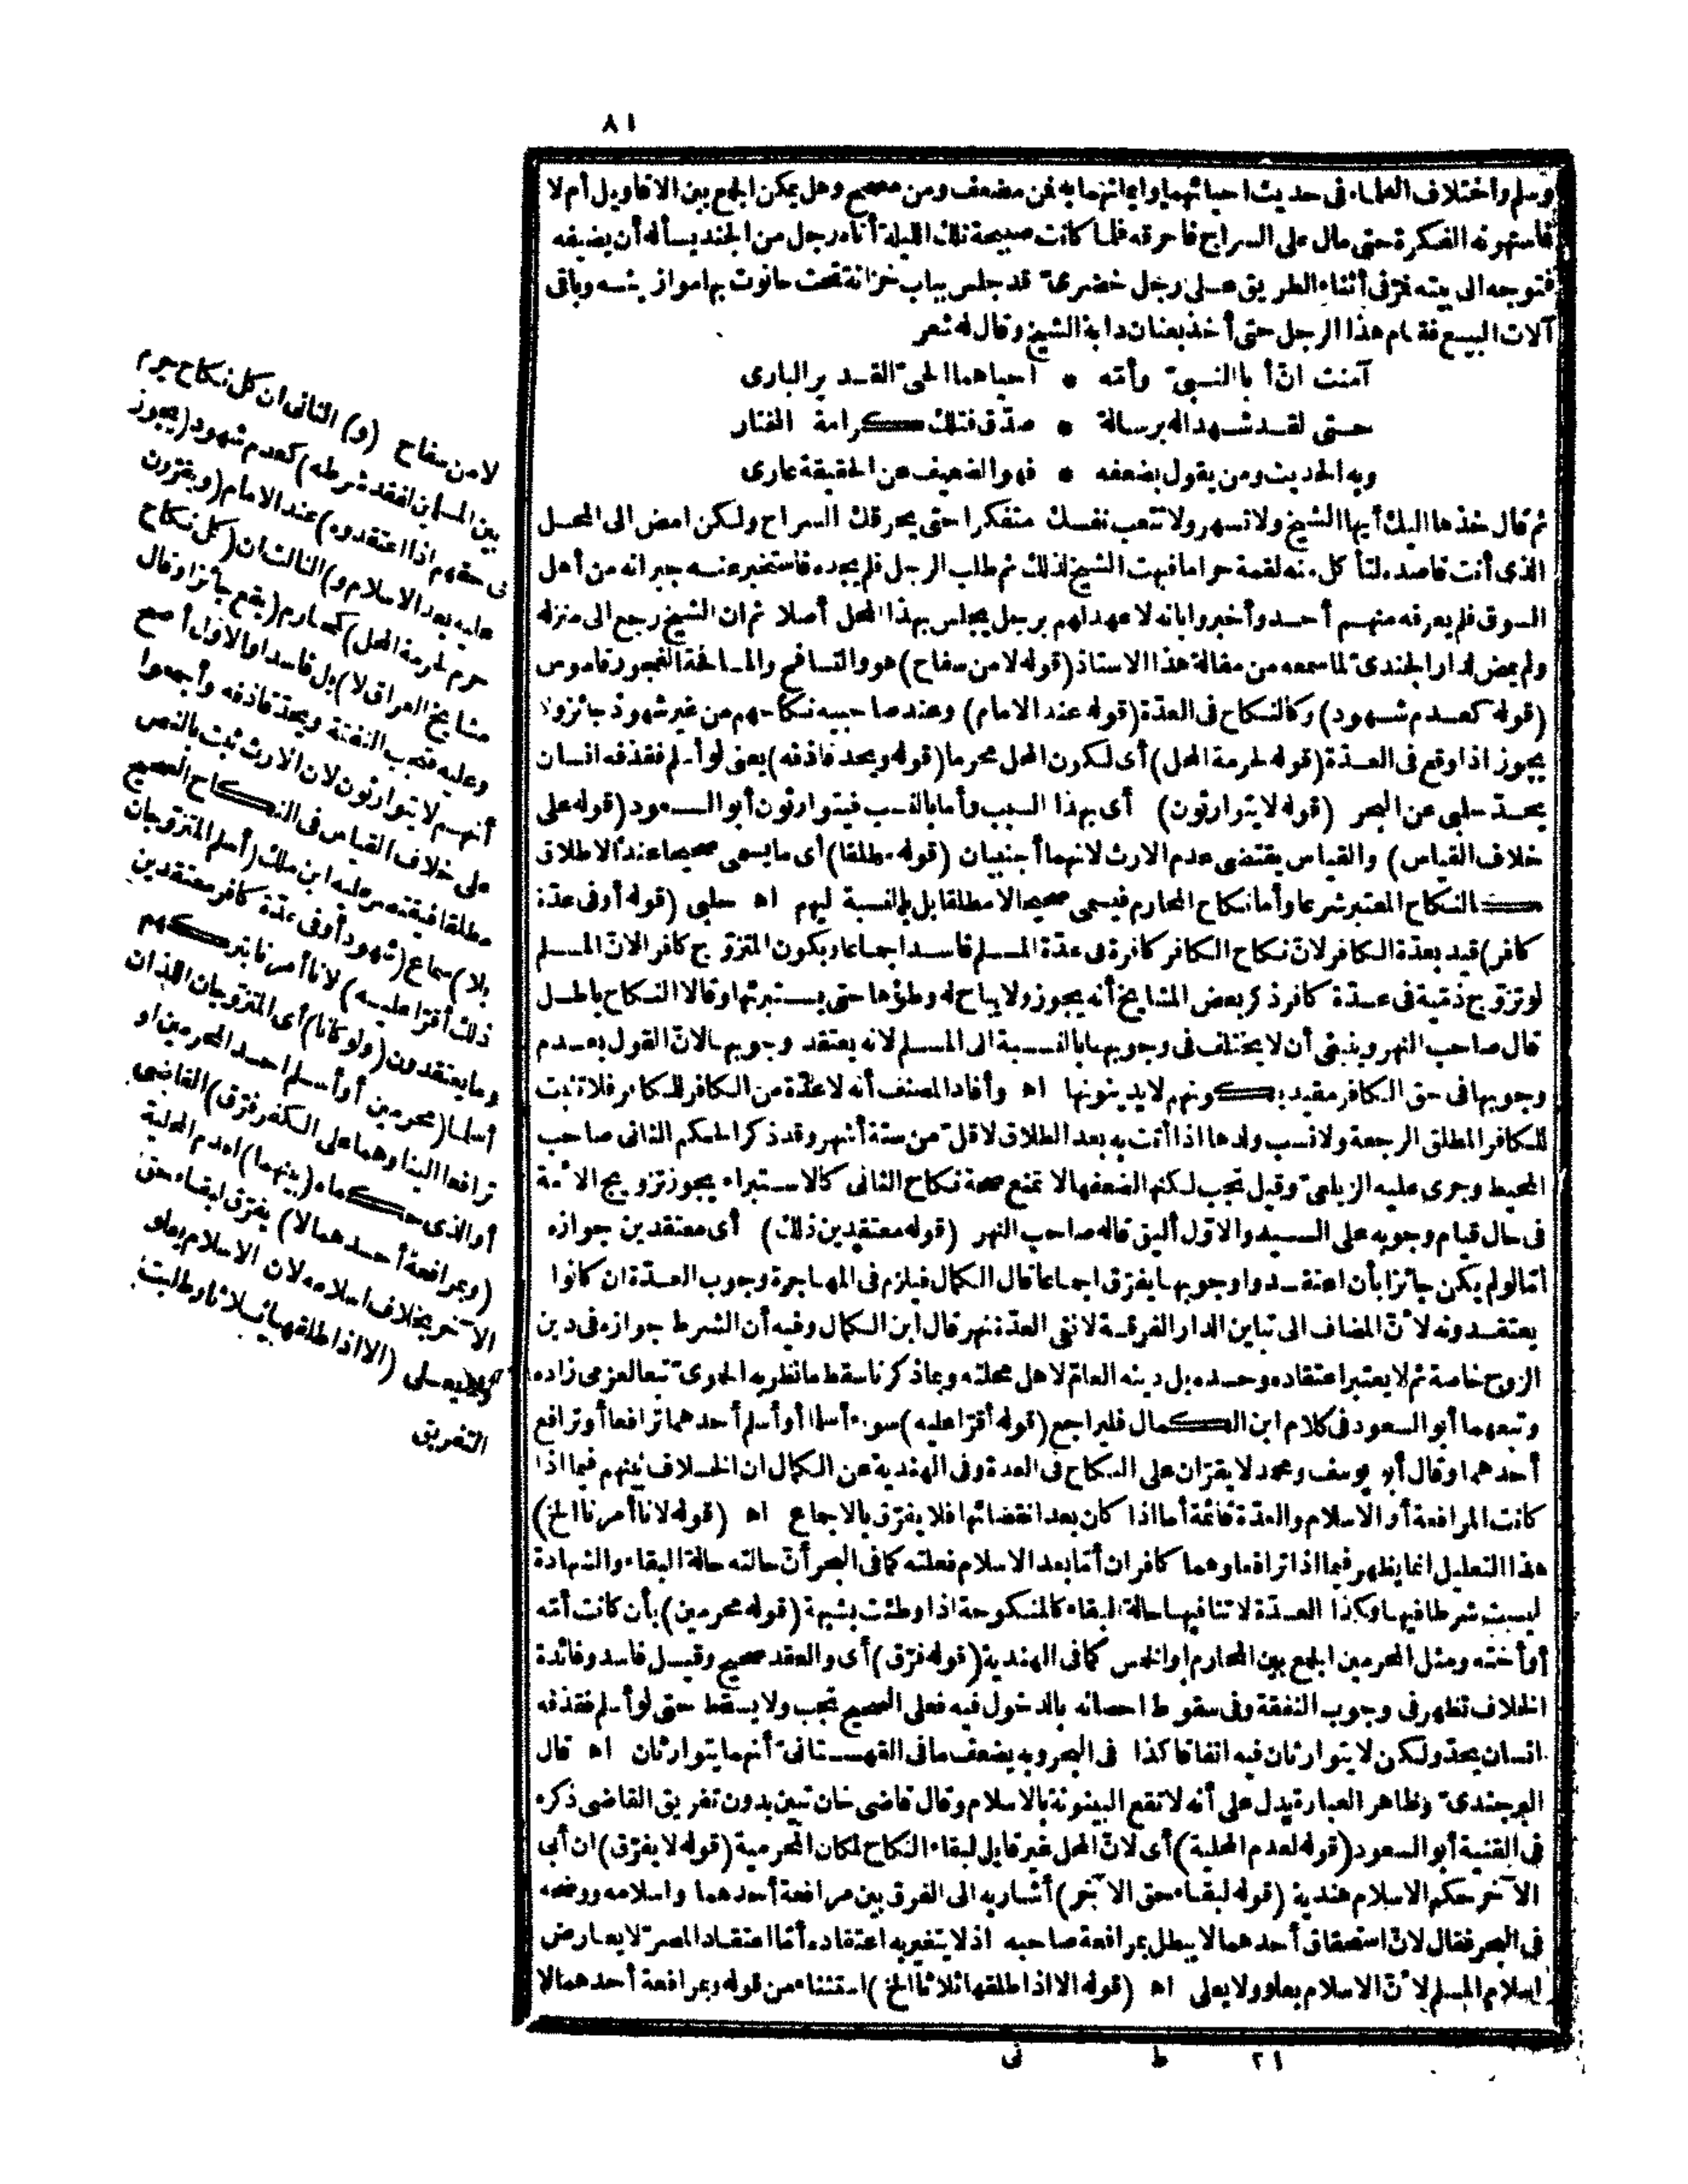 ٨١
وسلم واختلاف العلماء فى حديث احيائهما وايمانهما به فمن مضعف ومن مصحح وهل يمكن الجمع بين الاقاويل أم لا
فأستهوته الفكرة حتى مال على السراج فأحرقه فلما كانت صبيحة تلك الليلة أتاه رجل من الجند يسأله أن يضيفه
فتوجه الى بيته فمر فى أثناء الطريق على رجل خضرى قد جلس بباب خزانة تحت حانوت بها موازينه وباقى
آلات البيع فقام هذا الرجل حتى أخذ بعنان دابة الشيخ وقال له شعر
آمنت ان أبا النبى وأمه * احياهما الحى القدير البارى
حتى لقد شهدا له برسالة * صدق فتلك كرامة المختار
وبه الحديث ومن يقول بضعفه * فهو الضعيف عن الحقيقة عارى
ثم قال خذها اليك أيها الشيخ ولا تسهر ولا تتعب نفسك متفكرا حتى يحرقك السراح ولكن امض الى المحل
الذى أنت قاصده لتأكل منه لقمة حراما فبهت الشيخ لذلك ثم طلب الرجل فلم يجده فاستخبر عنه جيرانه من أهل
السوق فلم يعرفه منهم أحد وأخبروا بانه لا عهد لهم برجل يجلس بهذا المحل أصلا ثم ان الشيخ رجع الى منزله
ولم يمض لدار الجندى لما سمعه من مقالة هذا الاستاذ (قوله لا من سفاح) هو والتسافح والمسافحة الفجور قاموس
(قوله كعدم شهود) وكالنكاح فى العدة (قوله عند الامام) وعند صاحبيه نكاحهم من غير شهود جائز ولا
يجوز اذا وقع فى العدة (قوله لحرمة المحل) أى لكون المحل محرما (قوله ويحد قاذفه) يعنى لو أسلم فقذفه انسان
يحد حلبى عن البحر (قوله لا يتوارثون) أى بهذا السبب وأما بالنسب فيتوارثون أبو السعود (قوله على
خلاف القياس) والقياس يقتضى عدم الارث لانهما أجنبيان (قوله مطلقا) أى ما يسمى صحيحا عند الاطلاق
كالنكاح المعتبر شرعا وأما نكاح المحارم فيسمى صحيحا لا مطلقا بل بالنسبة اليهم اه حلبى (قوله أو فى عدة
كافر) قيد بعدة الكافر لان نكاح الكافر كافرة فى عدة المسلم فاسد اجماعا وبكون المتزوج كافرا لان المسلم
لو تزوج ذمية فى عدة كافر ذكر بعض المشايخ أنه يجوز ولا يباح له وطؤها حتى يستبرئها وقالا النكاح باطل
قال صاحب النهر وينبغى أن لا يختلف فى وجوبها بالنسبة الى المسلم لانه يعتقد وجوبها لان القول بعدم
وجوبها فى حق الكافر مقيد بكونهم لا يدينونها اه وأفاد المصنف أنه لا عدة من الكافر للكافر فلا تثبت
للكافر المطلق الرجعة ولا نسب ولدها اذا أتت به بعد الطلاق لاقل من ستة أشهر وقد ذكر الحكم الثانى صاحب
المحيط وجرى عليه الزيلعى وقيل تجب لكنها لضعفها لا تمنع صحة نكاح الثانى كالاستبراء يجوز تزويج الأمة
فى حال قيام وجوبه على السيد والاول أليق قاله صاحب النهر (قوله معتقدين ذلك) أى معتقدين جوازه
أما لو لم يكن جائزا بأن اعتقدوا وجوبها يفرق اجماعا قال الكمال فيلزم فى المهاجرة وجوب العدة ان كانوا
يعتقدونه لأن المضاف الى تباين الدار الفرقة لا نفى العدة نهر قال ابن الكمال وفيه أن الشرط جوازه فى دين
الزوج خاصة ثم لا يعتبر اعتقاده وحده بل دينه العام لاهل محلته وبما ذكرنا سقط ما نظر به الحموى تبعا لعزمى زاده
وتبعهما أبو السعود فى كلام ابن الكمال فليراجع (قوله أقرا عليه) سواء أسلما أو أسلم أحدهما ترافعا أو ترافع
أحدهما وقال أبو يوسف ومحمد لا يقران على النكاح فى العدة وفى الهندية عن الكمال ان الخلاف بينهم فيما اذا
كانت المرافعة أو الاسلام والعدة قائمة أما اذا كان بعد انقضائها فلا يفرق بالاجماع اه (قوله لانا أمرنا الخ)
هذا التعليل انما يظهر فيما اذا ترافعا وهما كافران أما بعد الاسلام فعلته كما فى البحر أن حالته حالة البقاء والشهادة
ليست شرطا فيها وكذا العدة لا تنافيها حالة البقاء كالمنكوحة اذا وطئت بشبهة (قوله محرمين) بأن كانت أمه
أو أخته ومثل المحرمين الجمع بين المحارم او الخمس كما فى الهندية (قوله فرق) أى والعقد صحيح وقيل فاسد وفائدة
الخلاف تظهر فى وجوب النفقة وفى سقوط احصانه بالدخول فيه فعلى الصحيح تجب ولا يسقط حتى لو أسلم فقذفه
انسان يحد ولكن لا يتوارثان فيه اتفاقا كذا فى البحر وبه يضعف ما فى القهستانى أنهما يتوارثان اه قال
البرجندى وظاهر العبارة يدل على أنه لا تقع البينونة بالاسلام وقال قاضى خان تبين بدون تفريق القاضى ذكره
فى القنية أبو السعود (قوله لعدم المحلية) أى لان المحل غير قابل لبقاء النكاح لمكان المحرمية (قوله لا يفرق) ان أبى
الآخر حكم الاسلام هندية (قوله لبقاء حق الآخر) أشار به الى الفرق بين مرافعة أحدهما واسلامه ووضحه
فى البحر فقال لان استحقاق أحدهما لا يبطل بمرافعة صاحبه اذ لا يتغير به اعتقاده أما اعتقاد المصر لا يعارض
اسلام المسلم لأن الاسلام يعلو ولا يعلى اه (قوله الا اذا طلقها ثلاثا الخ) استثناء من قوله وبمرافعة أحدهما لا
٢١ ط نى
لا من سفاح (و) الثانى ان كل نكاح حرم
بين المسلمين لفقد شرطه) كعدم شهود (يجوز
فى حقهم اذا اعتقدوه) عند الامام (ويقرون
عليه بعد الاسلام و) الثالث ان (كل نكاح
حرم لحرمة المحل) كمحارم (يقع جائزا وقال
مشايخ العراق لا) بل فاسدا والاول أصح
وعليه فتجب النفقة ويحد قاذفه وأجمعوا
أنهم لا يتوارثون لان الارث ثبت بالنص
على خلاف القياس فى النكاح الصحيح
مطلقا فيقتصر عليه ابن ملك (أسلم المتزوجان
بلا) سماع (شهود أو فى عدة كافر معتقدين
ذلك أقرا عليه) لانا أمرنا بتركهم
وما يعتقدون (ولو كانا) أى المتزوجان اللذان
أسلما (محرمين أو أسلم احد المحرمين او
ترافعا الينا وهما على الكفر فرق) القاضى
أو الذى حكماه (بينهما) لعدم المحلية
(وبمرافعة أحدهما لا) يفرق لبقاء حق
الآخر بخلاف اسلامه لان الاسلام يعلو
ولا يعلى (الا اذا طلقها ثلاثا وطلبت
التفريق